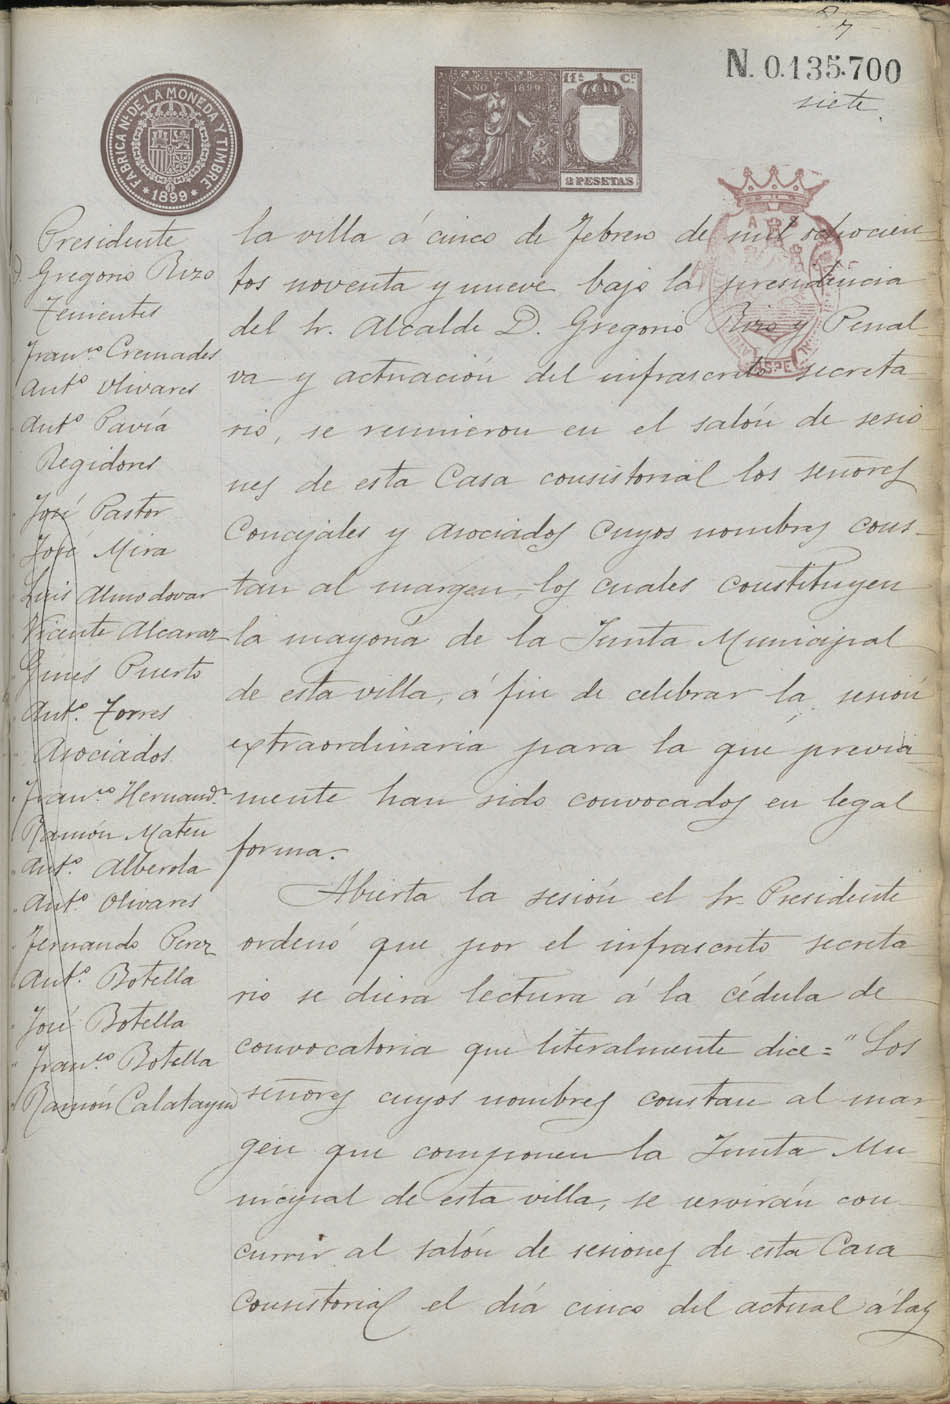 7
N. 0.135.700
siete.
FABRICA Nl. DE LA MONEDA Y TIMBRE
* 1899 *
AÑO 1899
11ª Cª
2 PESETAS
Presidente
D. Gregorio Rizo
Tenientes
Franco Cremades
Anto. Olivares
Anto. Pavía
Regidores
José Pastor
José Mira
Luis Almodovar
Vicente Alcaraz
Ginés Puerto
Anto. Torres
Asociados
Franco Hernandz
Ramón Mateu
Anto. Alberola
Anto. Olivares
Fernando Perez
Anto. Botella
José Botella
Franco. Botella
Ramón Calatayud
la villa á cinco de Febrero de mil ochocien
tos noventa y nueve bajo la presidencia
del Sr. Alcalde D. Gregorio Rizo y Penal
va y actuación del infrascrito secreta
rio, se reunieron en el salón de sesio
nes de esta Casa consistorial los señores
Concejales y asociados cuyos nombres cons-
tan al margen los cuales constituyen
la mayoría de la Junta Municipal
de esta villa, á fin de celebrar la sesión
extraordinaria para la que previa
mente han sido convocados en legal
forma.
Abierta la sesión el Sr. Presidente
ordenó que por el infrascrito secreta
rio se diera lectura á la cédula de
convocatoria que literalmente dice = "Los
señores cuyos nombres constan al mar
gen que componen la Junta Mu
nicipal de esta villa, se servirán con
currir al salón de sesiones de esta Casa
Consistorial el día cinco del actual á las